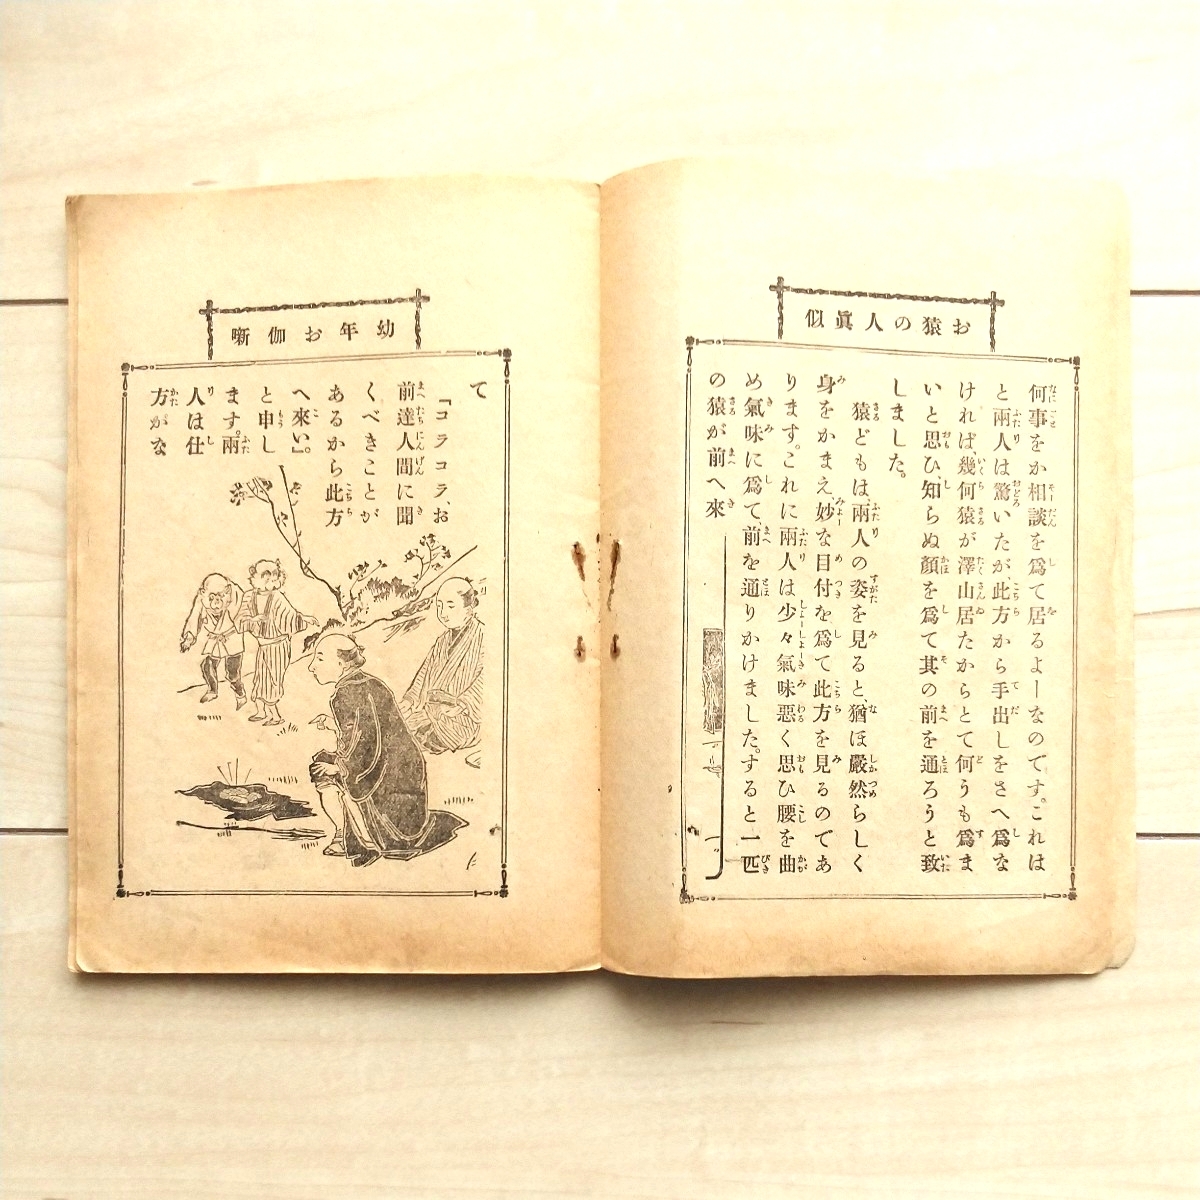 お猿の人眞似
何事をか相談を爲て居るよーなのです。これは
と兩人は驚いたが此方から手出しをさへ爲な
ければ、幾何猿が澤山居たからとて何うも爲ま
いと思ひ、知らぬ顏を爲て其の前を通ろうと致
しました。
猿どもは、兩人の姿を見ると、猶ほ嚴然らしく
身をかまえ、妙な目付を爲て此方を見るのであ
ります。これに兩人は少々氣味惡く思ひ腰を曲
め氣味に爲て、前を通りかけました。すると一匹
の猿が前へ來
幼年お伽噺
て
「コラコラ、お
前達人間に聞
くべきことが
あるから此方
へ來い』。
と申し
ます。兩
人は仕
方がな